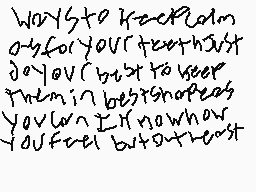 ways to keep calm
as for your teeth just
do your best to keep
them in best shape as
you can I know how
you feel but at least